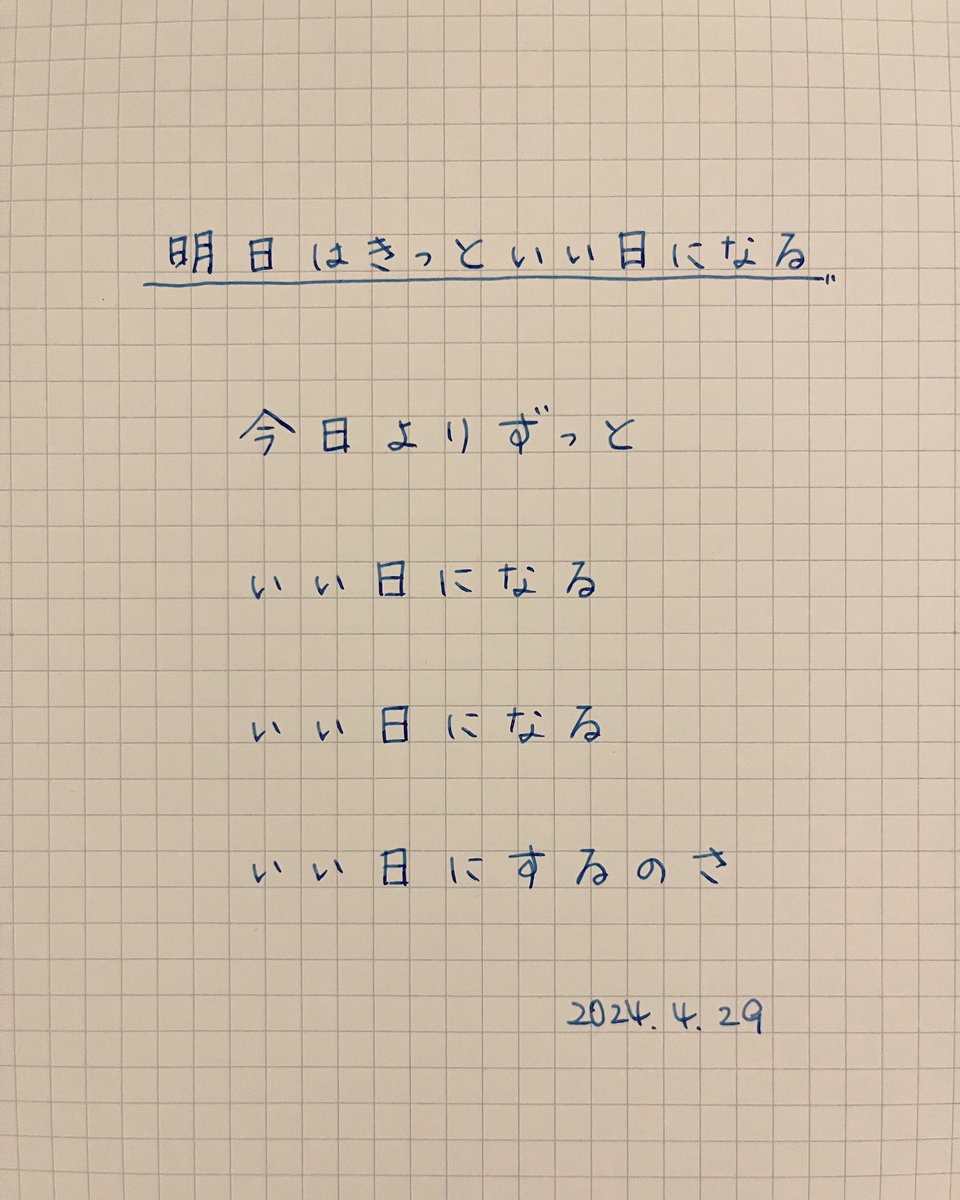 明日はきっといい日になる
今日よりずっと
いい日になる
いい日になる
いい日にするのさ
2024.4.29